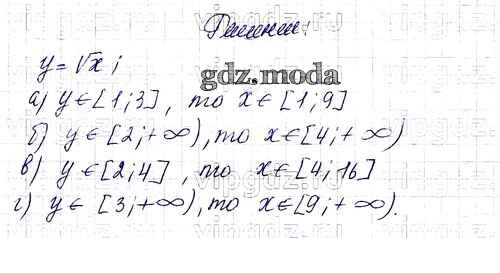 Решение:
y = √x ;
gdz.moda
а) y ∈ [1; 3] , то x ∈ [1; 9]
б) y ∈ [2; + ∞), то x ∈ [4; + ∞)
в) y ∈ [2; 4] , то x ∈ [4; 16]
г) y ∈ [3; + ∞), то x ∈ [9; + ∞).